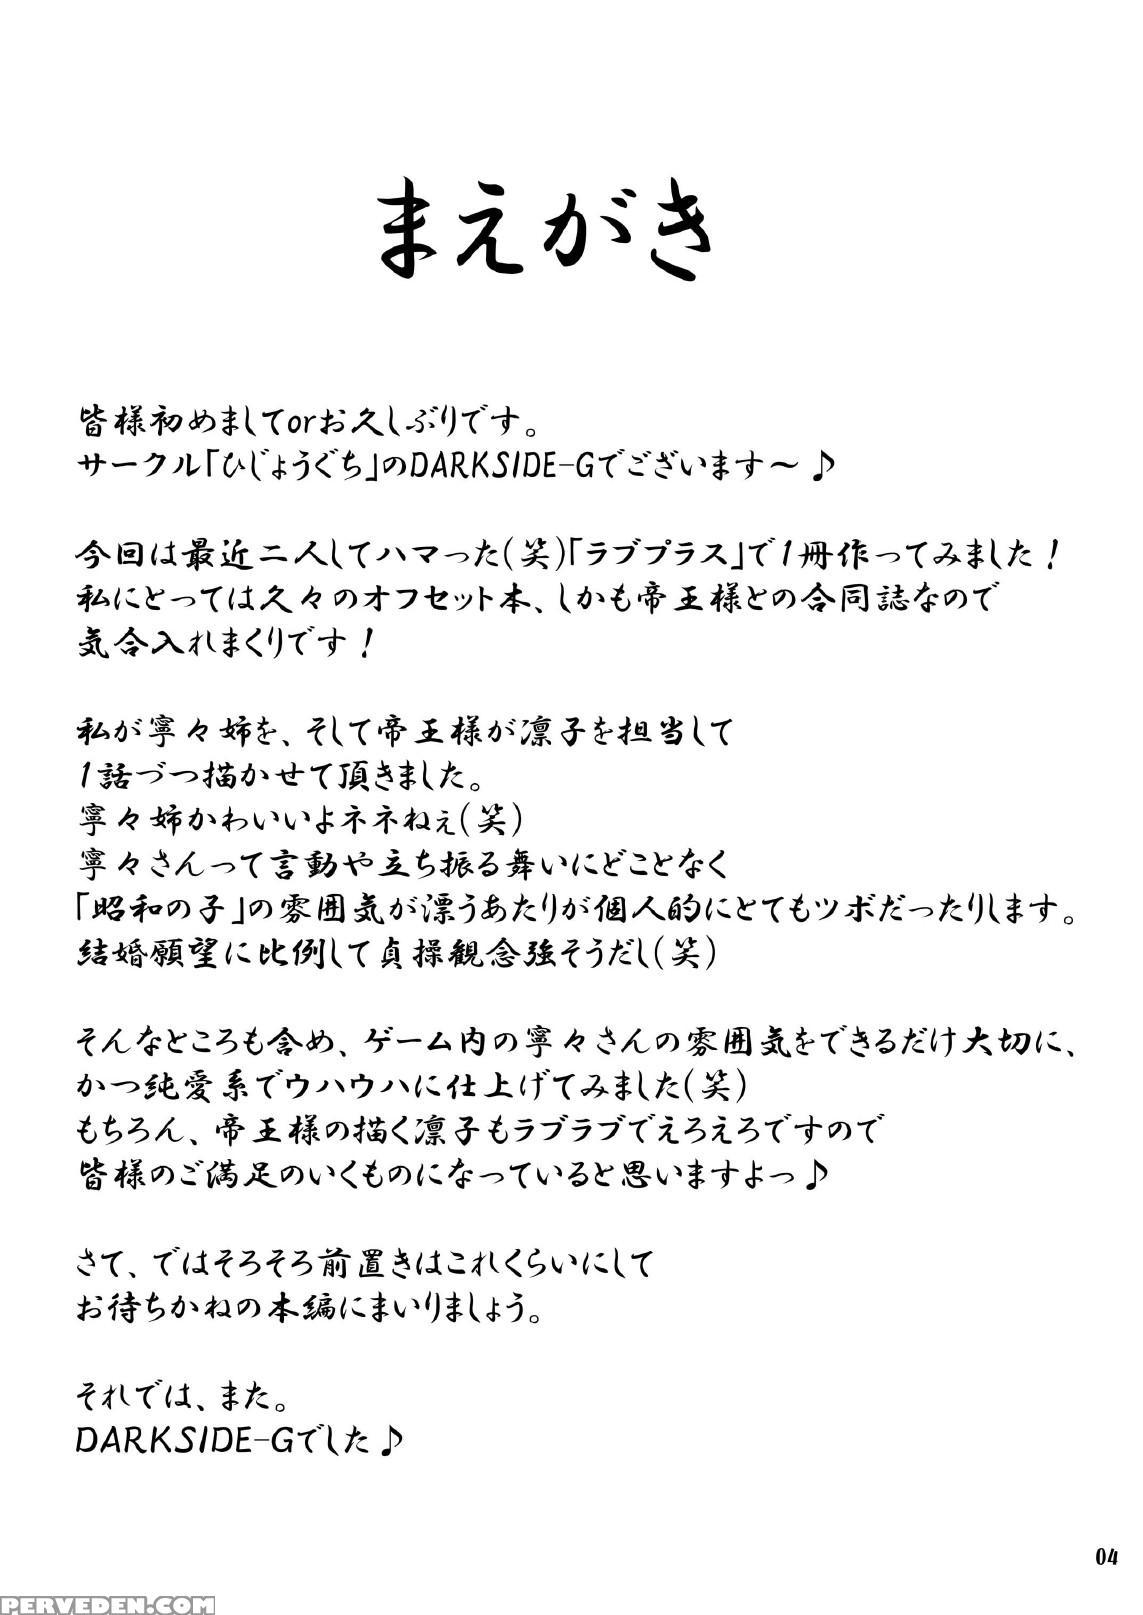 まえがき
皆様初めましてorお久しぶりです。
サークル「ひじょうぐち」のDARKSIDE-Gでございます～♪
今回は最近二人してハマった(笑)「ラブプラス」で1冊作ってみました！
私にとっては久々のオフセット本、しかも帝王様との合同誌なので
気合入れまくりです！
私が寧々姉を、そして帝王様が凛子を担当して
1話づつ描かせて頂きました。
寧々姉かわいいよネネねぇ(笑)
寧々さんって言動や立ち振る舞いにどことなく
「昭和の子」の雰囲気が漂うあたりが個人的にとてもツボだったりします。
結婚願望に比例して貞操観念強そうだし(笑)
そんなところも含め、ゲーム内の寧々さんの雰囲気をできるだけ大切に、
かつ純愛系でウハウハに仕上げてみました(笑)
もちろん、帝王様の描く凛子もラブラブでえろえろですので
皆様のご満足のいくものになっていると思いますよっ♪
さて、ではそろそろ前置きはこれくらいにして
お待ちかねの本編にまいりましょう。
それでは、また。
DARKSIDE-Gでした♪
04
PERVEDEN.COM